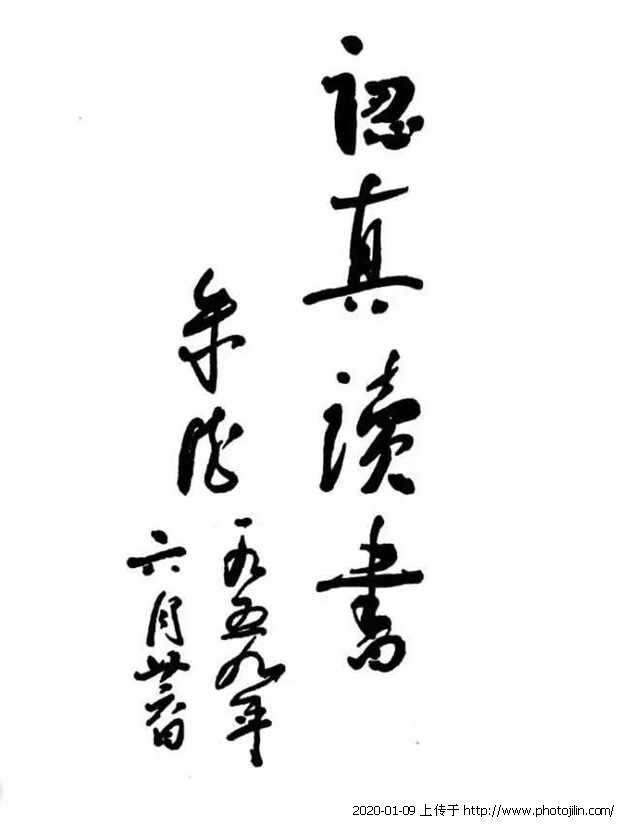 認真讀書
朱德
一九五九年
六月廿六日
2020-01-09 上传于 http://www.photojilin.com/